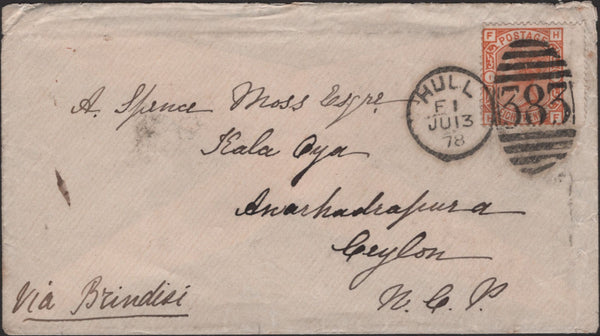 F H
POSTAGE
HULL
F1
JU 13
78
383
F
A. Spence Moss Esqre
Kala Oya
Anarhadrapura
Ceylon
N. C. P.
Via Brindisi